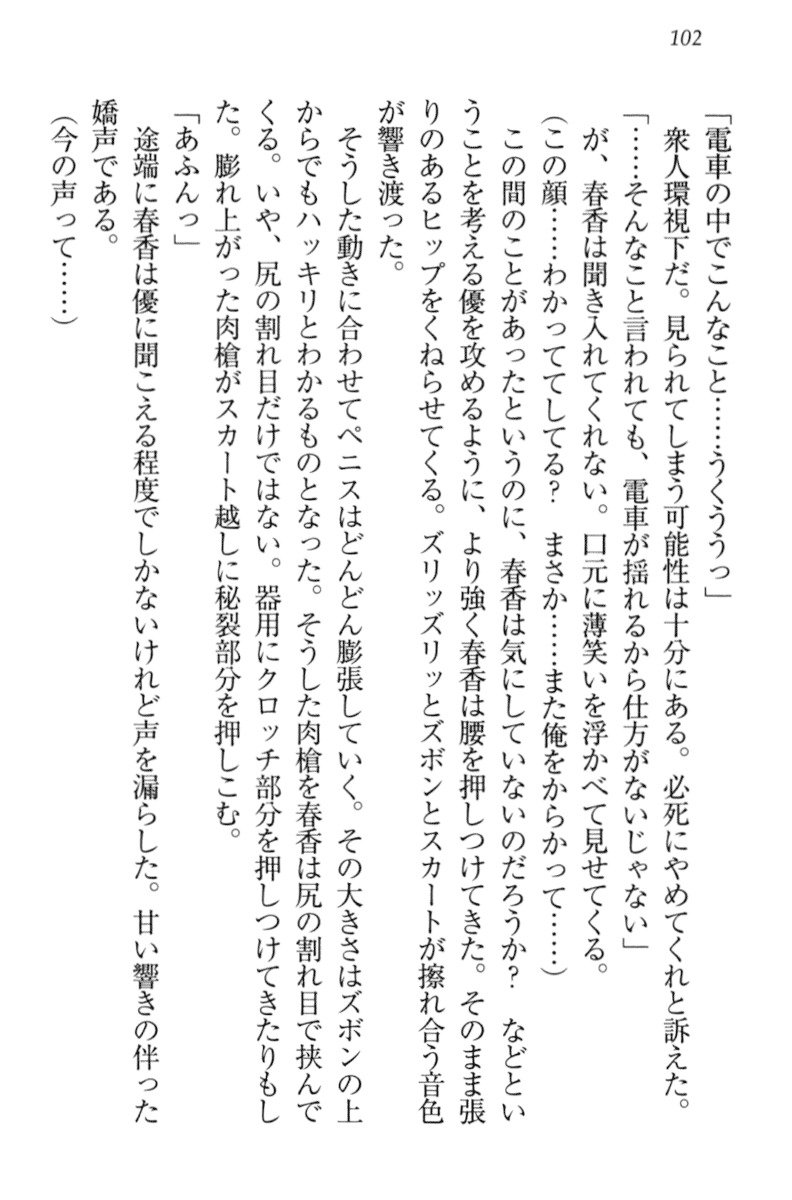 102
「電車の中でこんなこと……うくううっ」
　衆人環視下だ。見られてしまう可能性は十分にある。必死にやめてくれと訴えた。
「……そんなこと言われても、電車が揺れるから仕方がないじゃない」
　が、春香は聞き入れてくれない。口元に薄笑いを浮かべて見せてくる。
（この顔……わかっててしてる？　まさか……また俺をからかって……）
　この間のことがあったというのに、春香は気にしていないのだろうか？　などとい
うことを考える優を攻めるように、より強く春香は腰を押しつけてきた。そのまま張
りのあるヒップをくねらせてくる。ズリッズリッとズボンとスカートが擦れ合う音色
が響き渡った。
　そうした動きに合わせてペニスはどんどん膨張していく。その大きさはズボンの上
からでもハッキリとわかるものとなった。そうした肉槍を春香は尻の割れ目で挟んで
くる。いや、尻の割れ目だけではない。器用にクロッチ部分を押しつけてきたりもし
た。膨れ上がった肉槍がスカート越しに秘裂部分を押しこむ。
「あふんっ」
　途端に春香は優に聞こえる程度でしかないけれど声を漏らした。甘い響きの伴った
嬌声である。
（今の声って……）